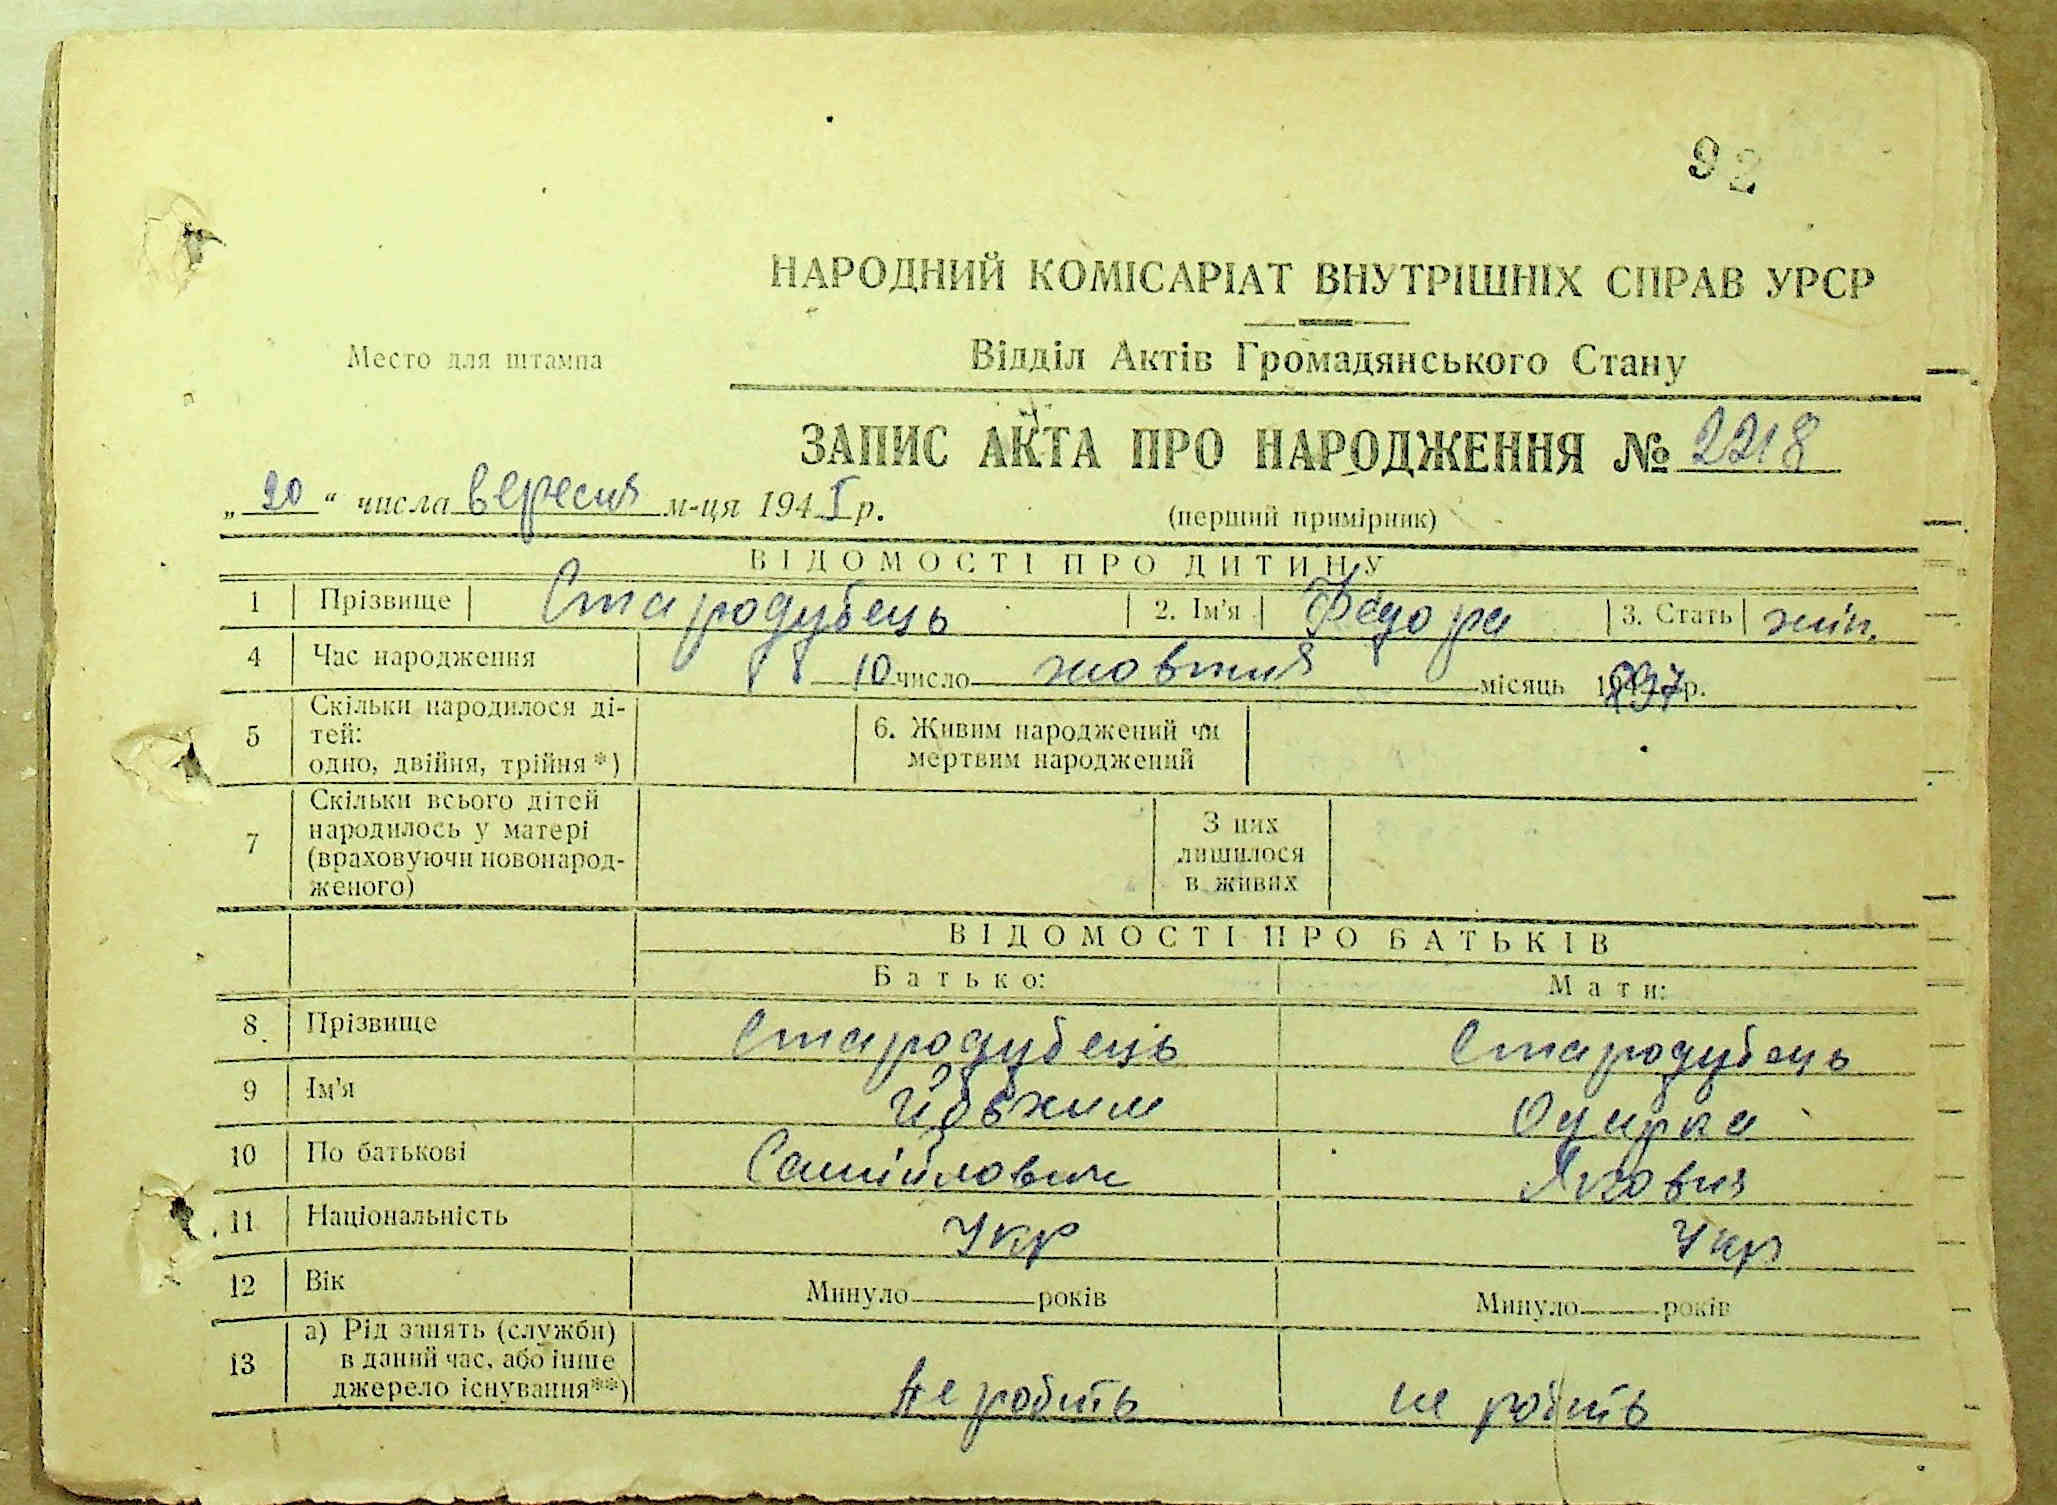 92
НАРОДНИЙ КОМІСАРІАТ ВНУТРІШНІХ СПРАВ УРСР
Место для штампа
Відділ Актів Громадянського Стану
ЗАПИС АКТА ПРО НАРОДЖЕННЯ № 2218
„20“ числа вересня м-ця 194І р.
(перший примірник)
ВІДОМОСТІ ПРО ДИТИНУ
1 Прізвище Стародубець 2. Ім'я Федора 3. Стать жін.
4 Час народження 10 число жовтня місяць 1897 р.
5 Скільки народилося ді-
тей:
одно, двійня, трійня*)
6. Живим народжений чи
мертвим народжений
7 Скільки всього дітей
народилось у матері
(враховуючи новонарод-
женого)
З них
лишилося
в живих
ВІДОМОСТІ ПРО БАТЬКІВ
Батько: Мати:
8 Прізвище Стародубець Стародубець
9 Ім'я Йовхим
10 По батькові Самійлович Яковня
11 Національність Укр Укр
12 Вік Минуло років Минуло років
13 а) Рід занять (служби)
в даний час, або інше
джерело існування**)
не робить не робить